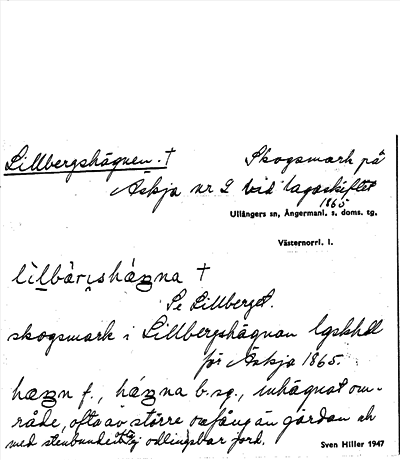 Lillbergshägnen. † Skogsmark på
Äskja nr 2 vid lagaskiftet
1865
Ullångers sn, Ångermanl. s. doms. tg.
Västernorrl. l.
lìlbärısházna †
Se Lillberget.
skogsmark i Lillbergshägnan lgskhdl
för Äskja 1865.
hæzn f., házna b. sg., inhägnat om-
råde, ofta av större omfång än gärdan och
med stenbunden, odlingsbar jord.
Sven Hiller 1947